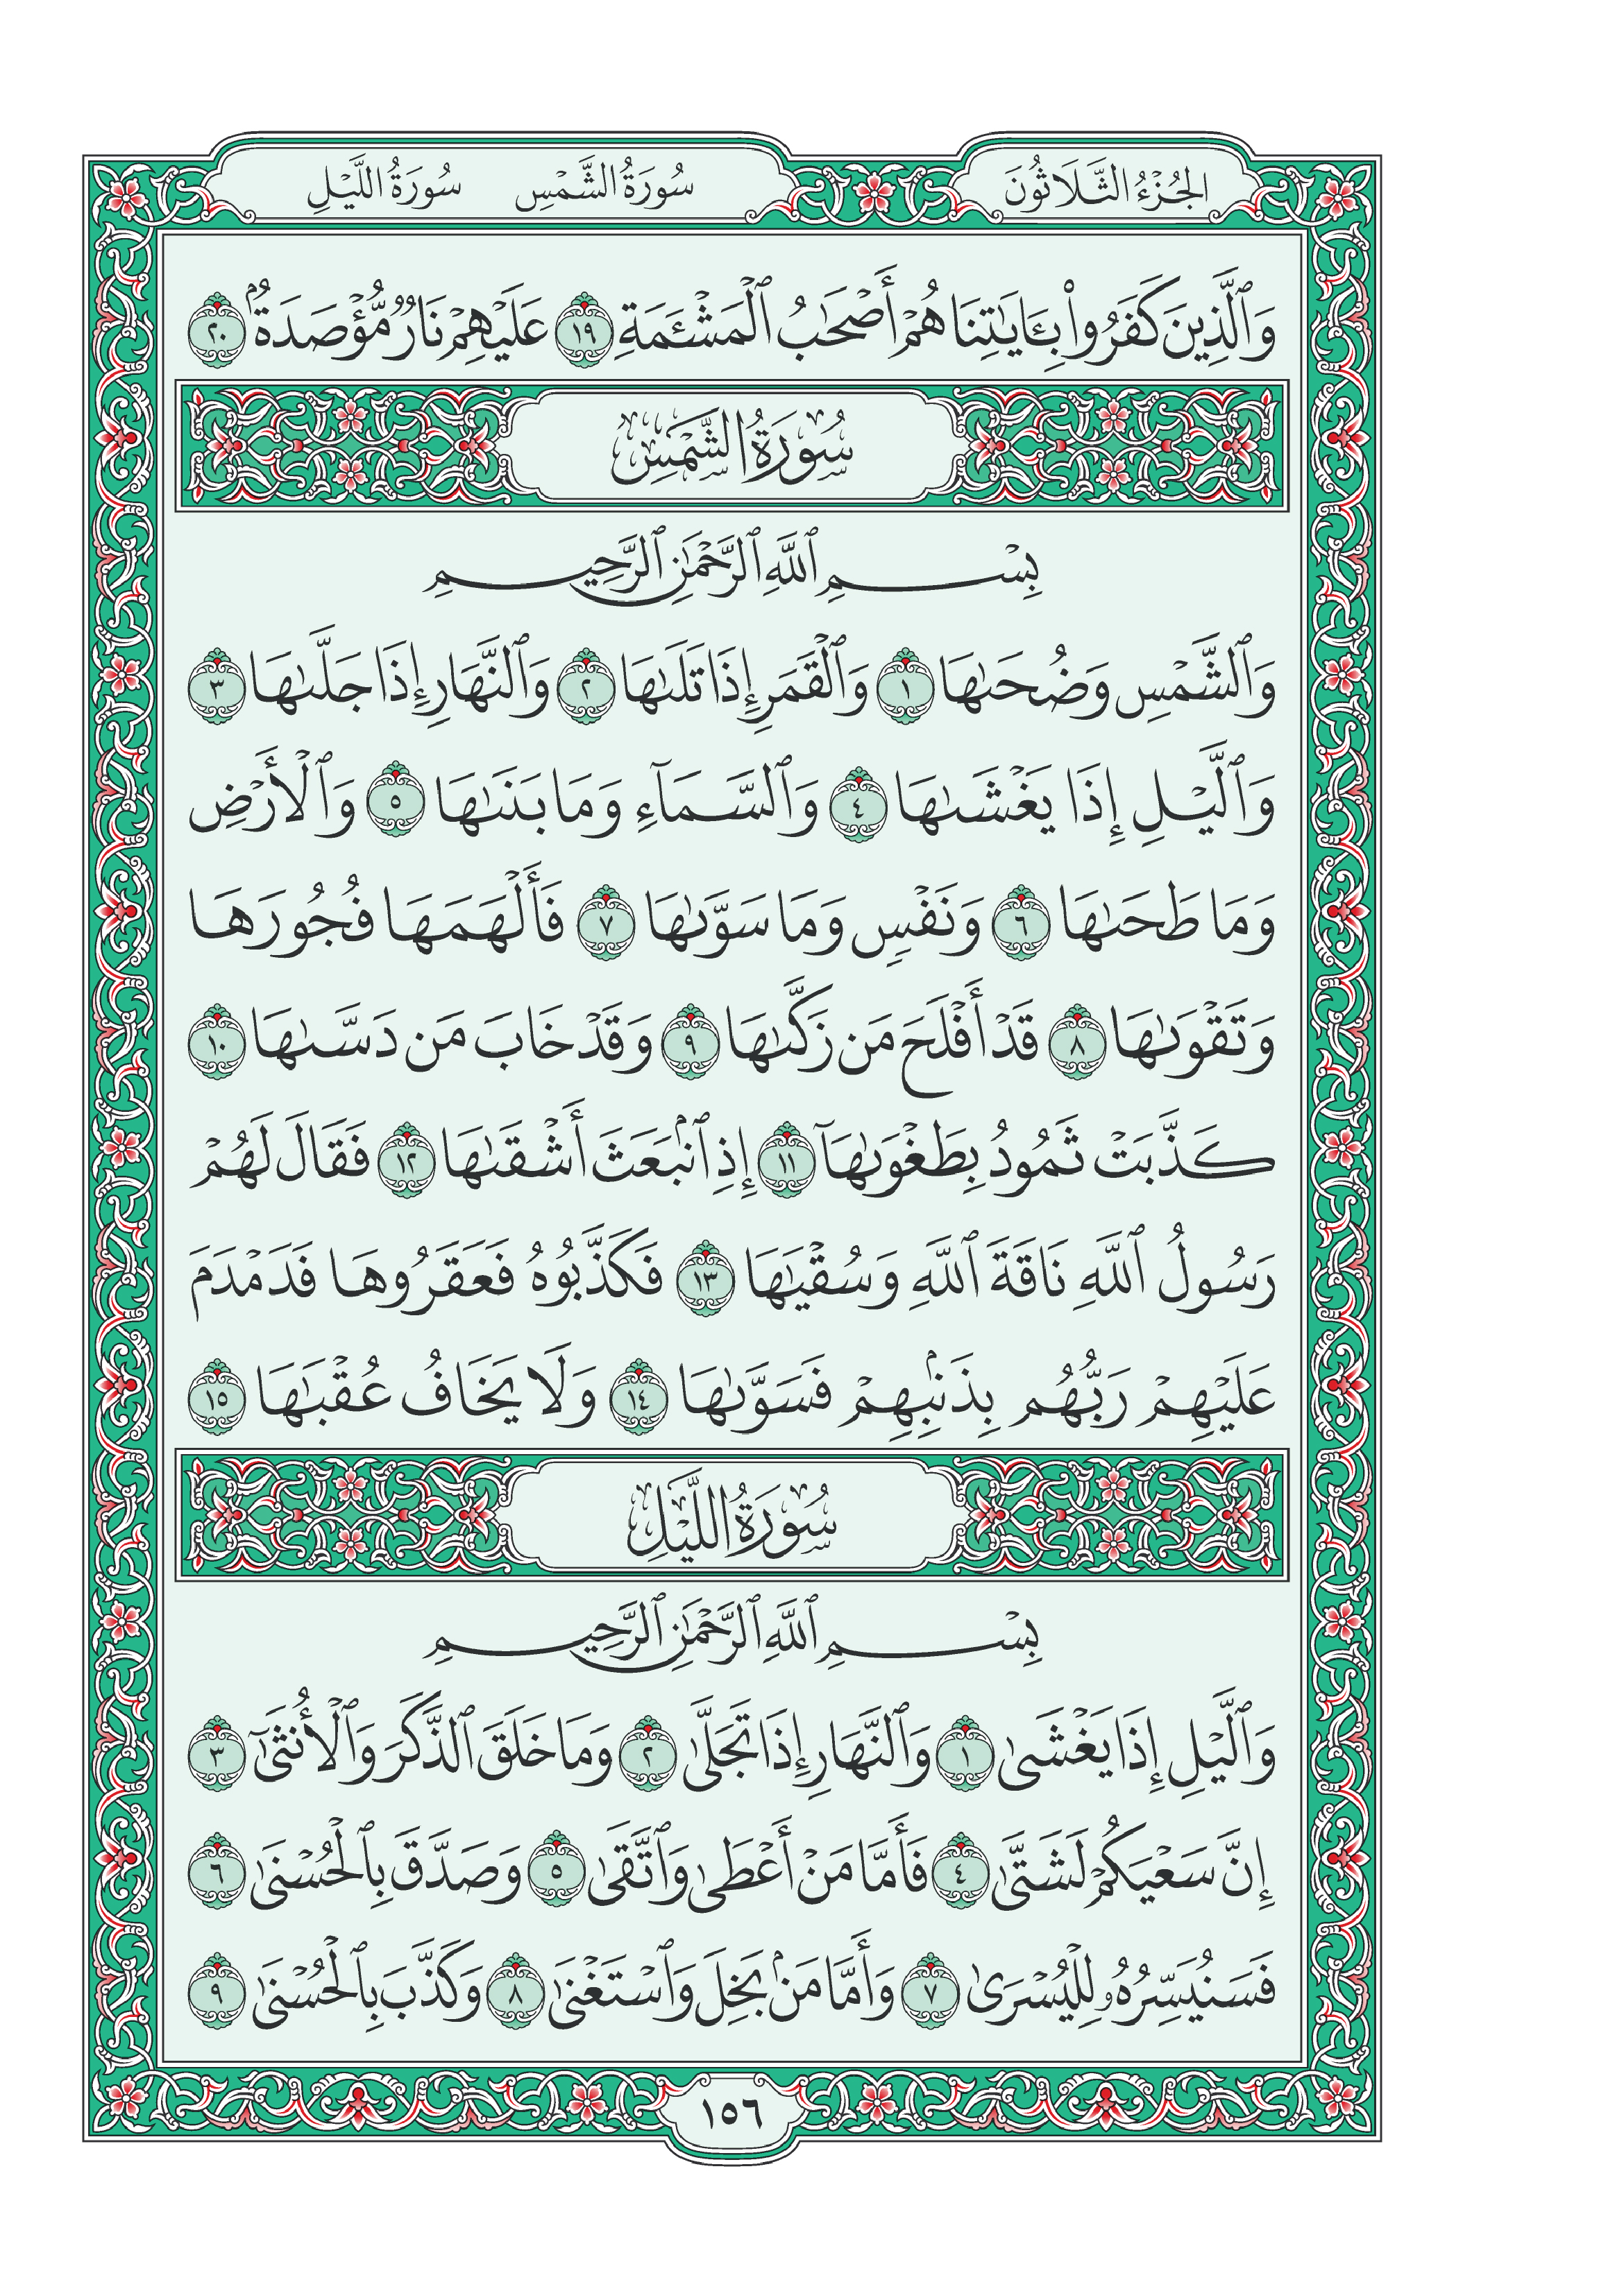 الجُزْءُ الثَّلَاثُونَ
سُورَةُ الشَّمْسِ سُورَةُ اللَّيْلِ
وَٱلَّذِينَ كَفَرُوا۟ بِـَٔايَٰتِنَا هُمْ أَصْحَٰبُ ٱلْمَشْـَٔمَةِ ١٩ عَلَيْهِمْ نَارٌ مُّؤْصَدَةٌۢ ٢٠
سُورَةُ الشَّمْسِ
بِسْمِ ٱللَّهِ ٱلرَّحْمَٰنِ ٱلرَّحِيمِ
وَٱلشَّمْسِ وَضُحَىٰهَا ١ وَٱلْقَمَرِ إِذَا تَلَىٰهَا ٢ وَٱلنَّهَارِ إِذَا جَلَّىٰهَا ٣
وَٱلَّيْلِ إِذَا يَغْشَىٰهَا ٤ وَٱلسَّمَآءِ وَمَا بَنَىٰهَا ٥ وَٱلْأَرْضِ
وَمَا طَحَىٰهَا ٦ وَنَفْسٍ وَمَا سَوَّىٰهَا ٧ فَأَلْهَمَهَا فُجُورَهَا
وَتَقْوَىٰهَا ٨ قَدْ أَفْلَحَ مَن زَكَّىٰهَا ٩ وَقَدْ خَابَ مَن دَسَّىٰهَا ١٠
كَذَّبَتْ ثَمُودُ بِطَغْوَىٰهَآ ١١ إِذِ ٱنۢبَعَثَ أَشْقَىٰهَا ١٢ فَقَالَ لَهُمْ
رَسُولُ ٱللَّهِ نَاقَةَ ٱللَّهِ وَسُقْيَٰهَا ١٣ فَكَذَّبُوهُ فَعَقَرُوهَا فَدَمْدَمَ
عَلَيْهِمْ رَبُّهُم بِذَنۢبِهِمْ فَسَوَّىٰهَا ١٤ وَلَا يَخَافُ عُقْبَٰهَا ١٥
سُورَةُ اللَّيْلِ
بِسْمِ ٱللَّهِ ٱلرَّحْمَٰنِ ٱلرَّحِيمِ
وَٱلَّيْلِ إِذَا يَغْشَىٰ ١ وَٱلنَّهَارِ إِذَا تَجَلَّىٰ ٢ وَمَا خَلَقَ ٱلذَّكَرَ وَٱلْأُنثَىٰٓ ٣
إِنَّ سَعْيَكُمْ لَشَتَّىٰ ٤ فَأَمَّا مَنْ أَعْطَىٰ وَٱتَّقَىٰ ٥ وَصَدَّقَ بِٱلْحُسْنَىٰ ٦
فَسَنُيَسِّرُهُۥ لِلْيُسْرَىٰ ٧ وَأَمَّا مَنۢ بَخِلَ وَٱسْتَغْنَىٰ ٨ وَكَذَّبَ بِٱلْحُسْنَىٰ ٩
١٥٦